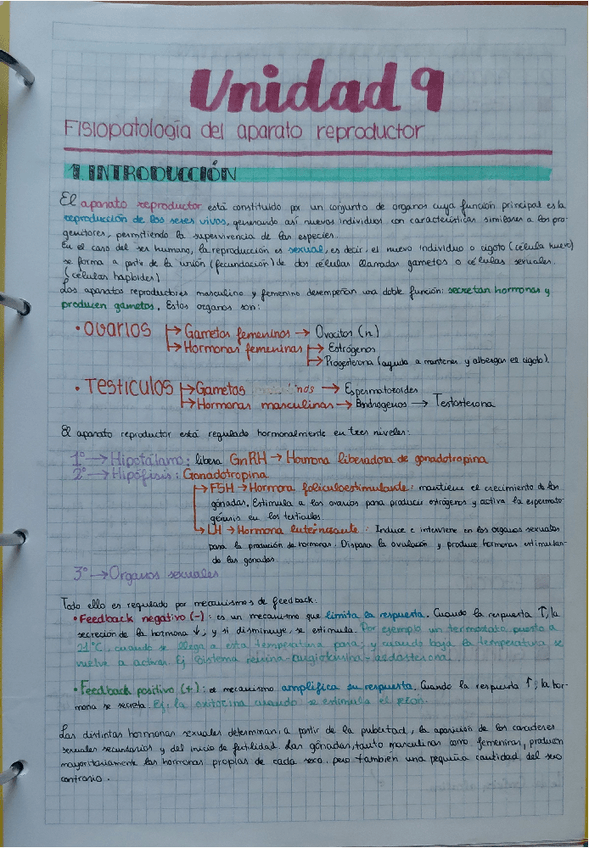 Unidad 9
Fisiopatología del aparato reproductor
1. INTRODUCCIÓN
El aparato reproductor está constituido por un conjunto de organos cuya función principal es la
reproducción de los seres vivos, generando así nuevos individuos con características similares a los pro-
genitores, permitiendo la supervivencia de las especies.
En el caso del ser humano, la reproducción es sexual, es decir, el nuevo individuo o cigoto (célula huevo)
se forma a partir de la unión (fecundación) de dos células llamadas gametos o células sexuales.
(células haploides)
Los aparatos reproductores masculino y femenino desempeñan una doble función: secretan hormonas y
producen gametos. Estos organos son:
• OVARIOS → Gametos femeninos → Ovocitos (n)
→ Hormonas femeninas → Estrógenos
→ Progesterona (ayuda a mantener y albergar el cigoto).
• TESTÍCULOS → Gametos → Espermatozoides
→ Hormonas masculinas → Andrógenos → Testosterona
El aparato reproductor está regulado hormonalmente en tres niveles:
1º → Hipotálamo: libera GnRH → Hormona liberadora de gonadotropina
2º → Hipófisis: Gonadotropina
→ FSH → Hormona foliculoestimulante: mantiene el crecimiento de las
gónadas. Estimula a los ovarios para producir estrógenos y activa la espermato-
génesis en los testículos.
→ LH → Hormona luteinizante: Induce e interviene en los organos sexuales
para la producción de hormonas. Dispara la ovulación y produce hormonas estimulan-
do las gónadas.
3º → Organos sexuales
Todo ello es regulado por mecanismos de feedback:
• Feedback negativo (-): es un mecanismo que limita la respuesta. Cuando la respuesta ↑, la
secreción de la hormona ↓, y si disminuye, se estimula. Por ejemplo un termostato puesto a
21°C, cuando se llega a esta temperatura para, y cuando baja la temperatura, se
vuelve a activar. Ej. Sistema renina-angiotensina-aldosterona.
• Feedback positivo (+): el mecanismo amplifica su respuesta. Cuando la respuesta ↑, la hor-
mona se secreta. Ej: la oxitocina cuando se estimula el pezón.
Las distintas hormonas sexuales determinan, a partir de la pubertad, la aparición de los caracteres
sexuales secundarios y del inicio de fertilidad. Las gónadas, tanto masculinas como femeninas, producen
mayoritariamente las hormonas propias de cada sexo, pero también una pequeña cantidad del sexo
contrario.